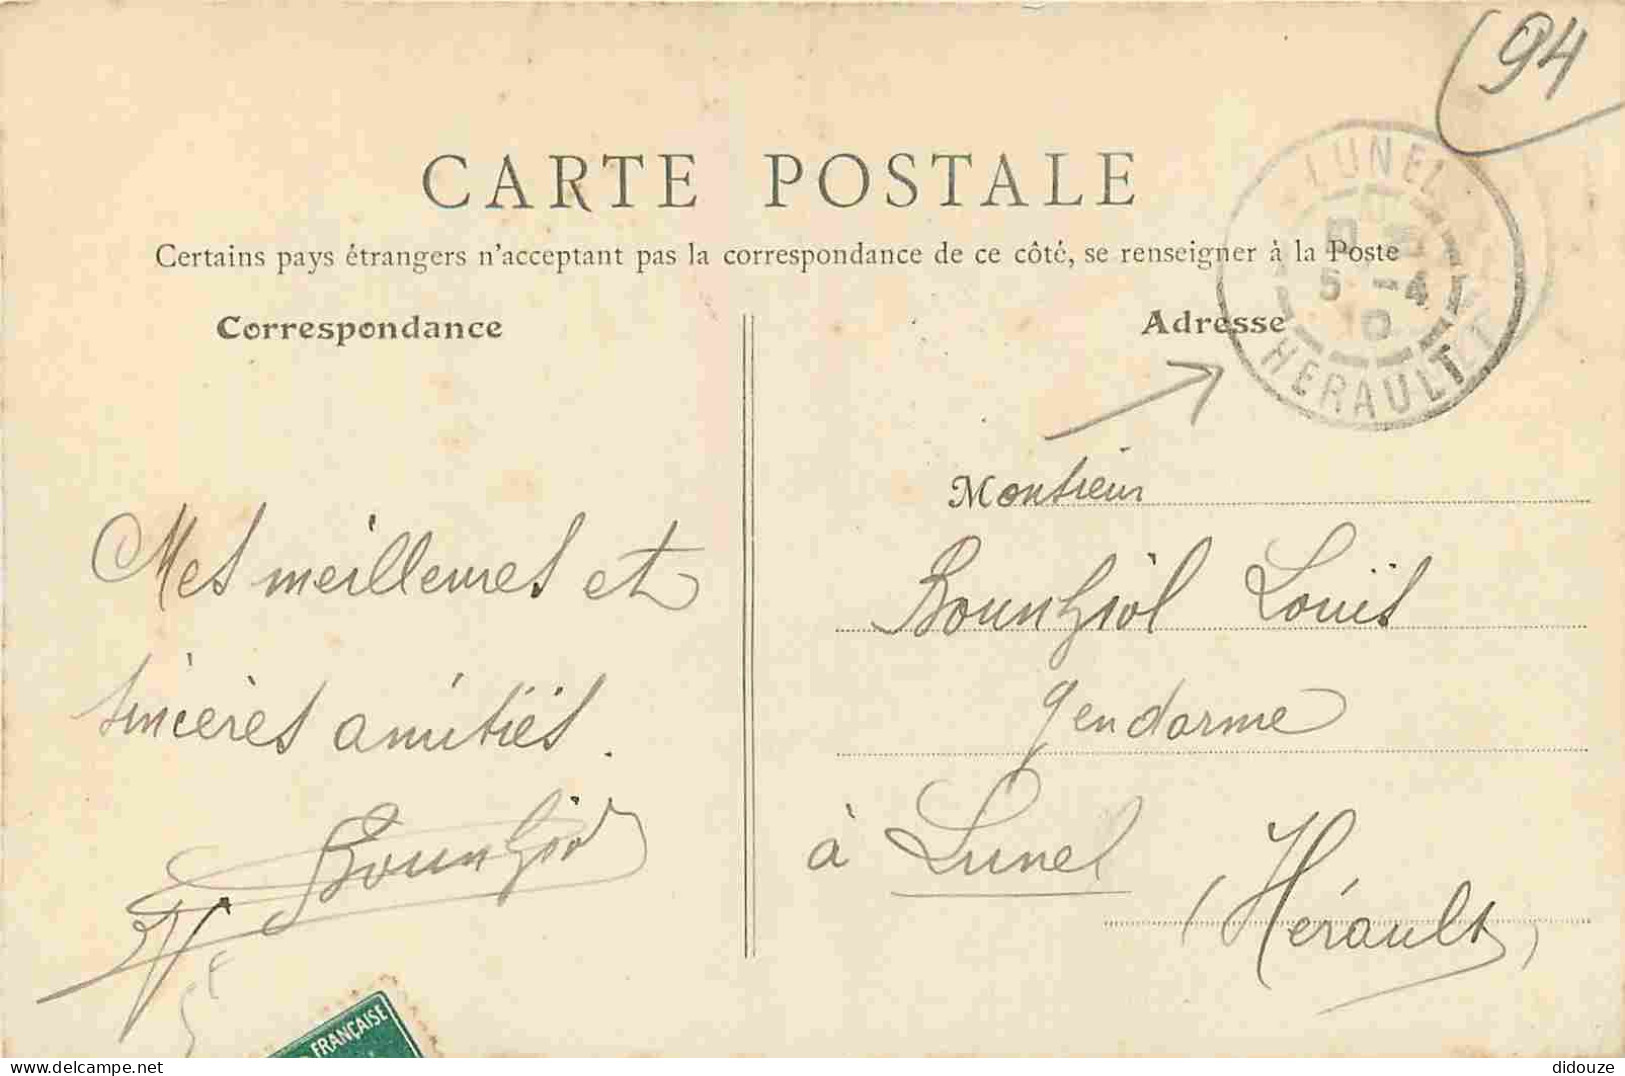 94
CARTE POSTALE
Certains pays étrangers n'acceptant pas la correspondance de ce côté, se renseigner à la Poste
Correspondance
Adresse
LUNEL
5 -4
10
HERAULT
Monsieur
Mes meilleures et
sincères amitiés.
Bounhiol Louis
gendarme
à Lunel
(Hérault)
Bounhiol
FRANÇAISE
didouze